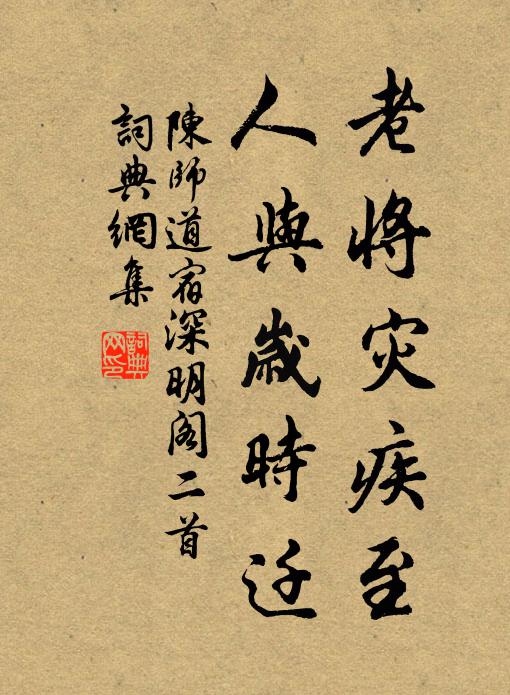 老將灾疾至
人與歲時迁
陳師道宿深明閣二首
詞典網集
詞典
网印